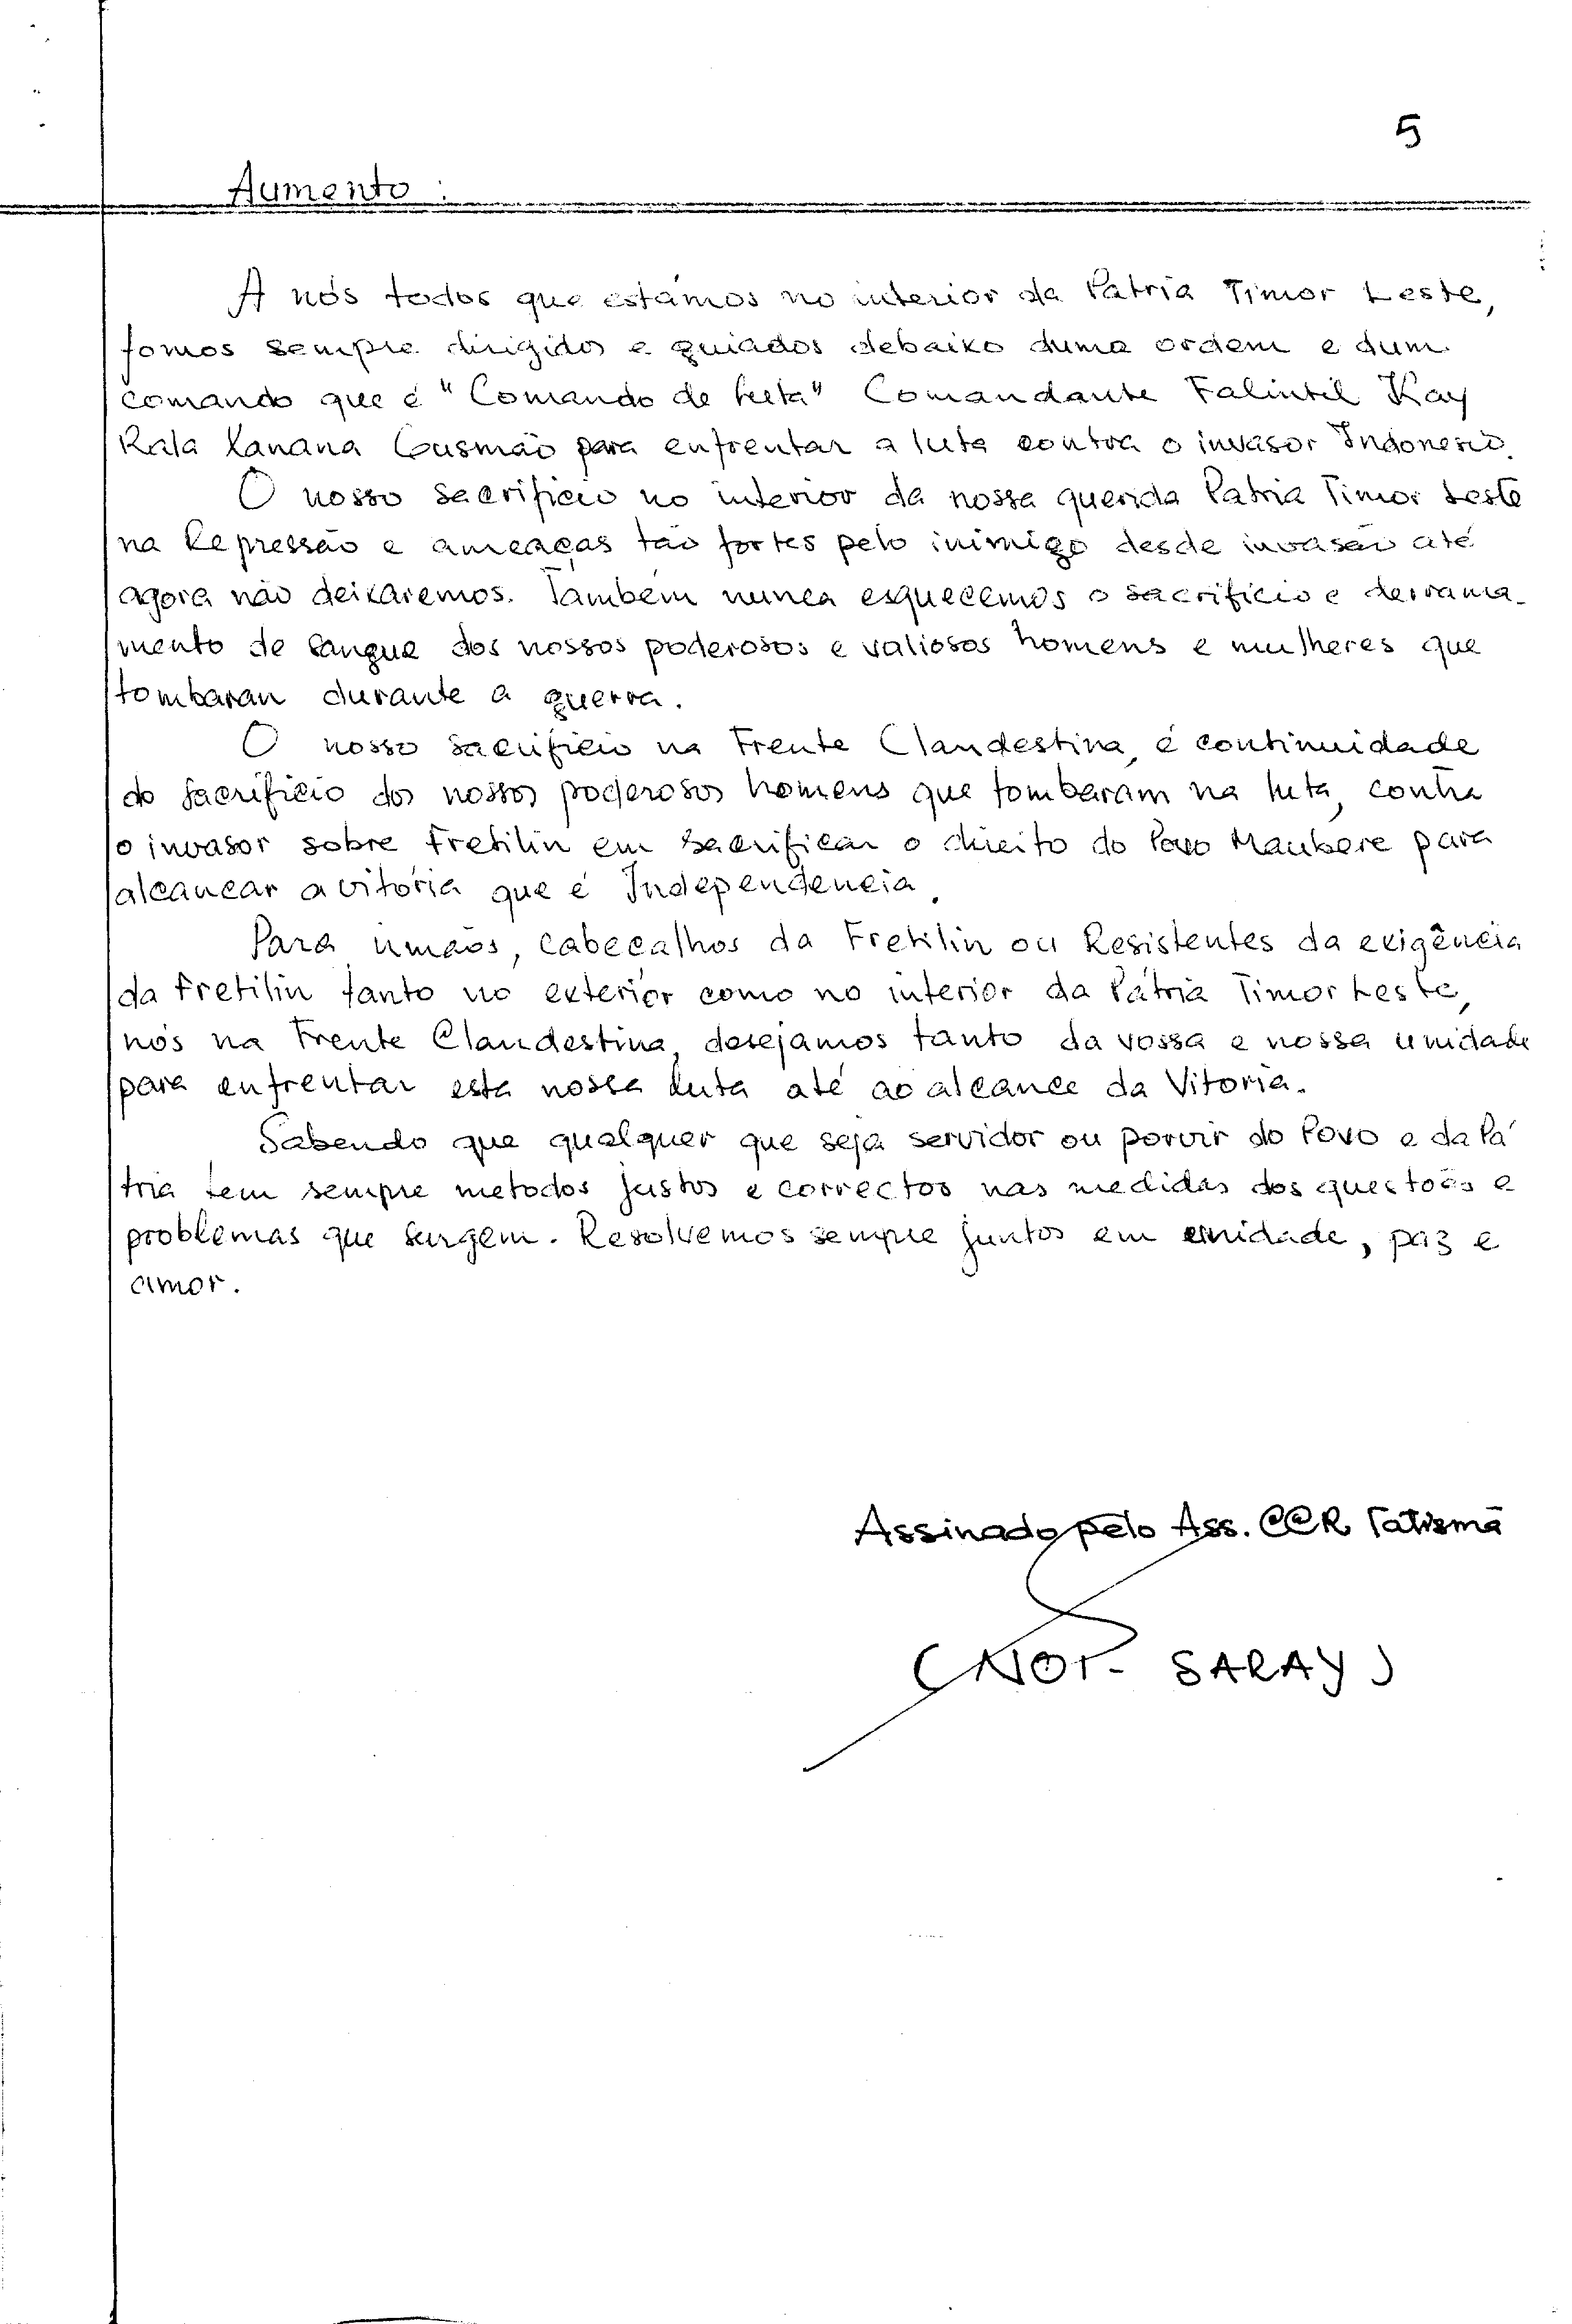 5
Aumento :
A nós todos que estámos no interior da Patria Timor Leste,
fomos sempre dirigidos e guiados debaixo duma ordem e dum
comando que é "Comando de luta" Comandante Falintil Kay
Rala Xanana Gusmão para enfrentar a luta contra o invasor Indonesio.
O nosso sacrificio no interior da nossa querida Patria Timor Leste
na Repressão e ameaças tão fortes pelo inimigo desde invasão até
agora não deixaremos. Também nunca esquecemos o sacrificio e derrama-
mento de sangue dos nossos poderosos e valiosos homens e mulheres que
tombaran durante a guerra.
O nosso sacrificio na Frente Clandestina, é continuidade
do sacrificio dos nossos poderosos homens que tombaram na luta, contra
o invasor sobre Fretilin em sacrificar o direito do Povo Maubere para
alcançar a vitória que é Independencia.
Para irmãos, cabeçalhos da Fretilin ou Resistentes da exigência
da Fretilin tanto no exterior como no interior da Pátria Timor Leste,
nós na Frente Clandestina, desejamos tanto da vossa e nossa unidade
para enfrentar esta nossa luta até ao alcance da Vitoria.
Sabendo que qualquer que seja servidor ou porvir do Povo e da Pá
tria tem sempre metodos justos e correctos nas medidas dos questoẽs e
problemas que surgem. Resolvemos sempre juntos em unidade, paz e
amor.
Assinado pelo Ass. CCR Tatismã
(NOT- SARAY)